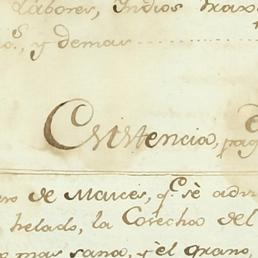 Labores, Indios
y demas
Existencia, pag
de Maices, q.e se
helado, la Cosecha del
mas sano, y el grano,